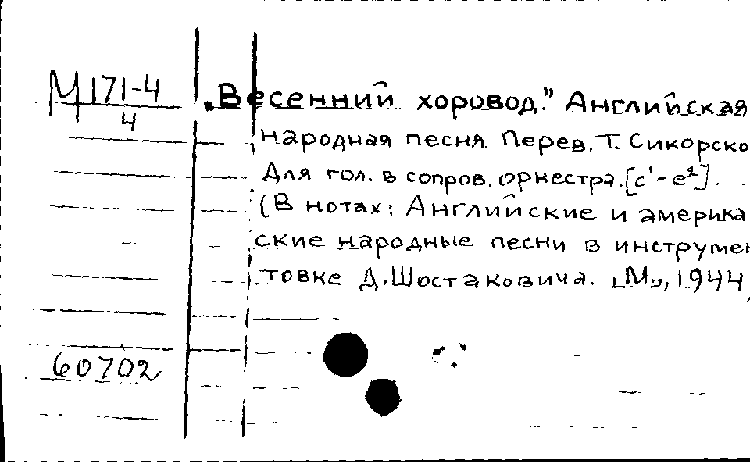 М171-4
4
„Весенний хоровод." Английская
народная песня. Перев. Т. Сикорско
Для гол. в сопров. оркестра. [c¹-e²].
(В нотах: Английские и америка
ские народные песни в инструмен
товке Д. Шостаковича. [М.], 1944,
60702